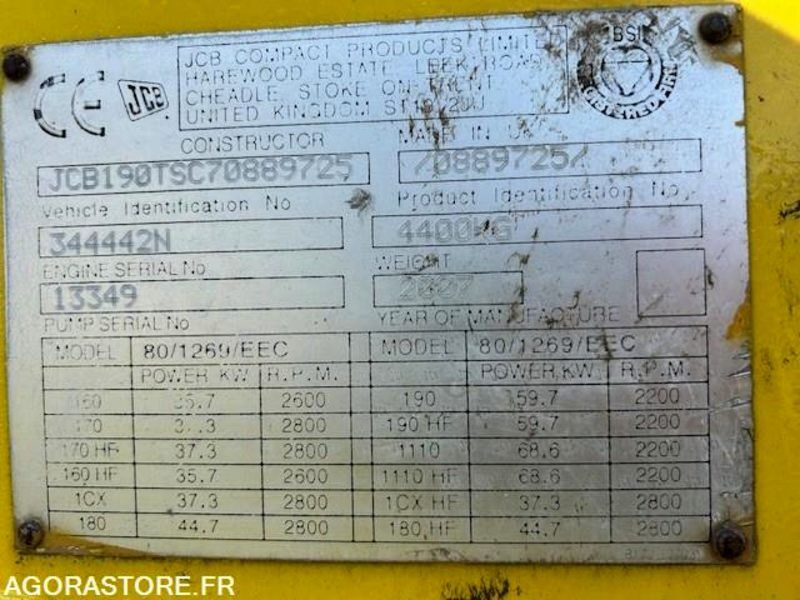 CE JCB
JCB COMPACT PRODUCTS LIMITED
HAREWOOD ESTATE LEEK ROAD
CHEADLE STOKE ON TRENT
UNITED KINGDOM
BSI
REGISTERED FIRM
CONSTRUCTOR MADE IN UK
JCB190TSC70889725 /0889725/
Vehicle Identification No Product Identification No
344442N 4400KG
ENGINE SERIAL No WEIGHT
13349 2007
PUMP SERIAL No YEAR OF MANUFACTURE
MODEL 80/1269/EEC MODEL 80/1269/EEC
POWER KW R.P.M. POWER KW R.P.M.
160 35.7 2600 190 59.7 2200
170 2800 190 HF 59.7 2200
170 HF 37.3 2800 1110 68.6 2200
160 HF 35.7 2600 1110 HF 68.6 2200
1CX 37.3 2800 1CX HF 37.3 2800
180 44.7 2800 180 HF 44.7 2800
AGORASTORE.FR